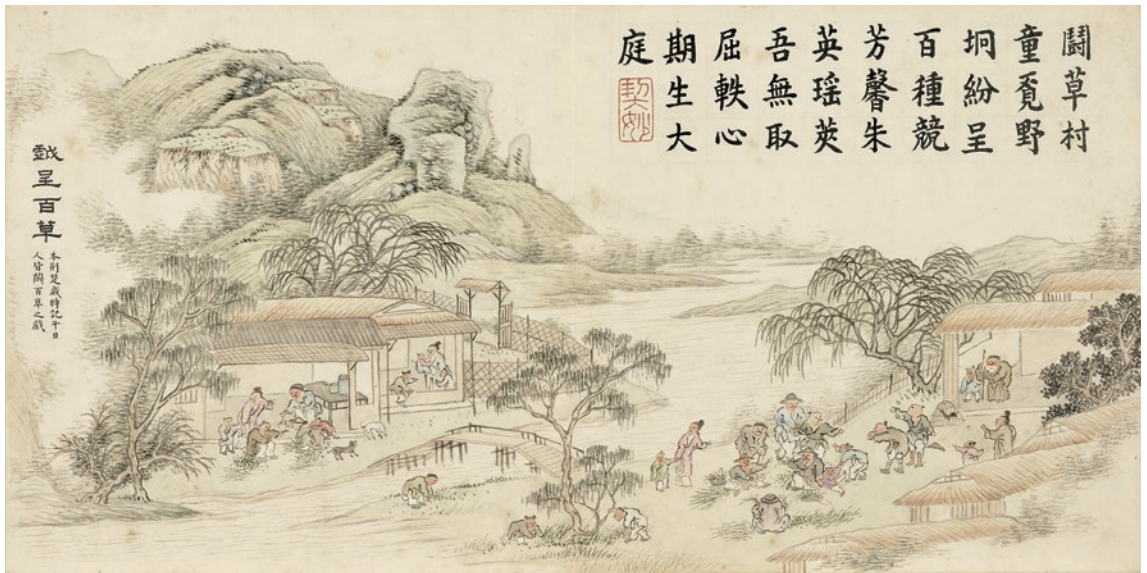 鬪草村
童覔野
坰紛呈
百種競
芳馨朱
英瑤莢
吾無取
屈軼心
期生大
庭
契妙
戲呈百草
本荊楚歲時記午日
人皆鬪百草之戲